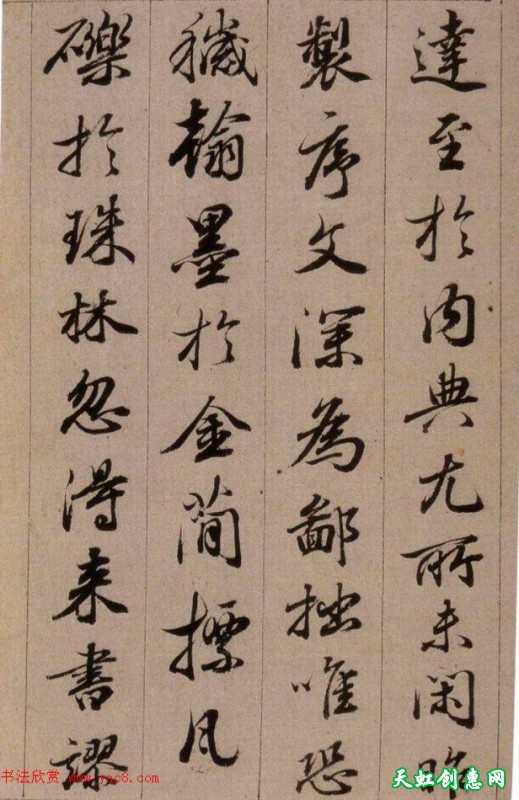 達至於內典尤所未閑昨
製序文深為鄙拙唯恐
穢翰墨於金簡標凡
礫於珠林忽得來書謬
书法欣赏 www.yac8.com
天虹创意网